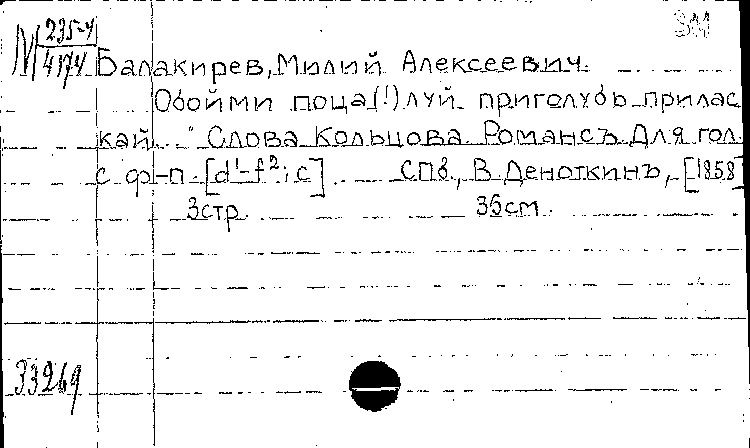 М 235-4/4174
311
Балакирев, Милий Алексеевич.
Обойми поца(!)луй приголубь прилас
кай..." Слова Кольцова. Романсъ для гол.
с ф-п. [d'-f²; c] СПб., В. Деноткинъ, [1858]
3стр. 35см.
33269